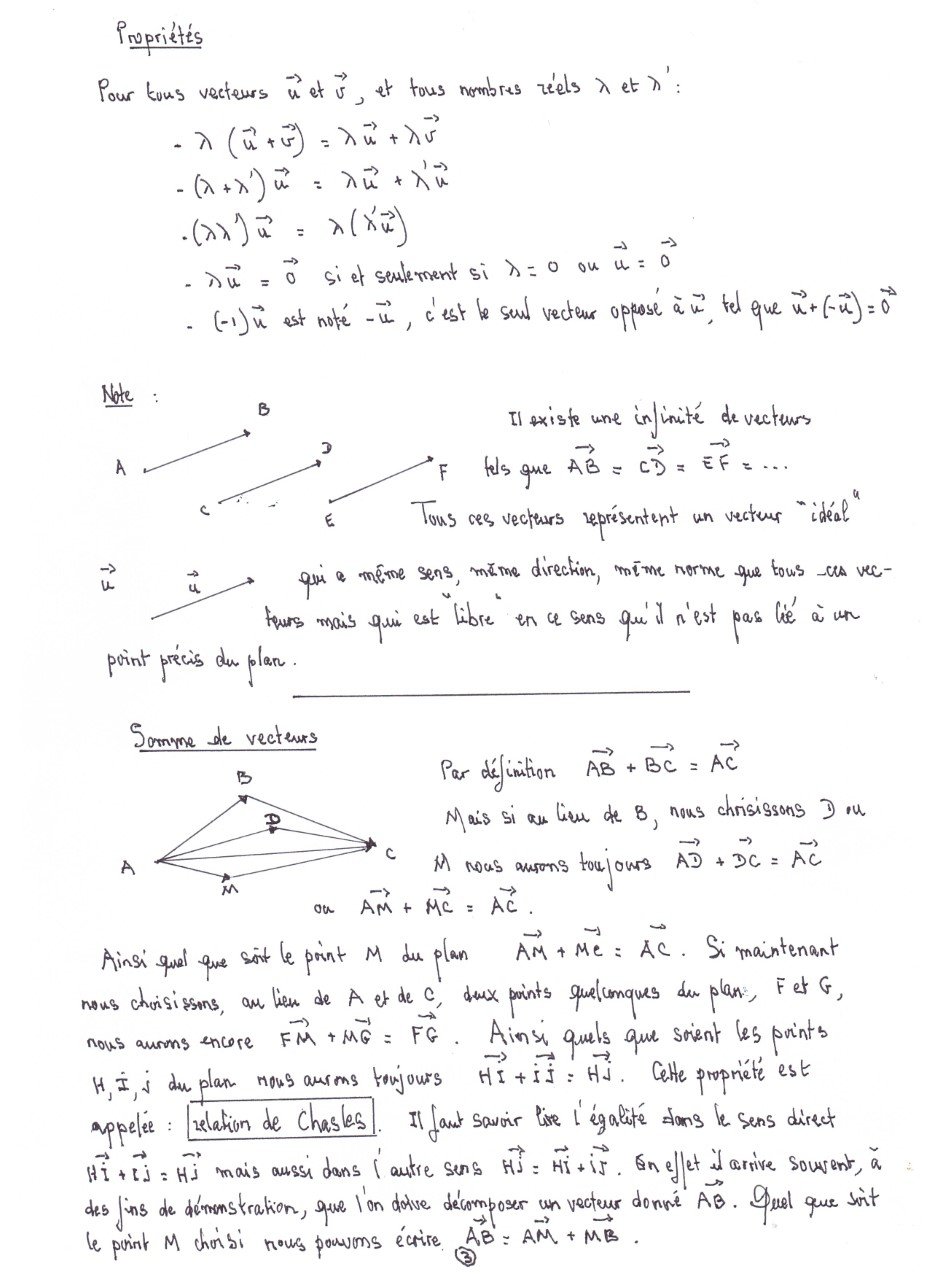 Propriétés
Pour tous vecteurs u⃗ et v⃗, et tous nombres réels λ et λ' :
- λ (u⃗ + v⃗) = λu⃗ + λv⃗
- (λ + λ') u⃗ = λu⃗ + λ'u⃗
- (λλ') u⃗ = λ(λ'u⃗)
- λu⃗ = 0⃗ si et seulement si λ = 0 ou u⃗ = 0⃗
- (-1)u⃗ est noté -u⃗, c'est le seul vecteur opposé à u⃗, tel que u⃗ + (-u⃗) = 0⃗
Note :
A B
C D
E F
Il existe une infinité de vecteurs
tels que AB⃗ = CD⃗ = EF⃗ = ...
Tous ces vecteurs représentent un vecteur "idéal"
u⃗ u⃗
qui a même sens, même direction, même norme que tous ces vec-
teurs mais qui est "libre" en ce sens qu'il n'est pas lié à un
point précis du plan.
Somme de vecteurs
A B D C M
Par définition AB⃗ + BC⃗ = AC⃗
Mais si au lieu de B, nous choisissons D ou
M nous aurons toujours AD⃗ + DC⃗ = AC⃗
ou AM⃗ + MC⃗ = AC⃗.
Ainsi quel que soit le point M du plan AM⃗ + MC⃗ = AC⃗. Si maintenant
nous choisissons, au lieu de A et de C, deux points quelconques du plan, F et G,
nous aurons encore FM⃗ + MG⃗ = FG⃗. Ainsi quels que soient les points
H, I, J du plan nous aurons toujours HI⃗ + IJ⃗ = HJ⃗. Cette propriété est
appelée : relation de Chasles. Il faut savoir lire l'égalité dans le sens direct
HI⃗ + IJ⃗ = HJ⃗ mais aussi dans l'autre sens HJ⃗ = HI⃗ + IJ⃗. En effet il arrive souvent, à
des fins de démonstration, que l'on doive décomposer un vecteur donné AB⃗. Quel que soit
le point M choisi nous pouvons écrire AB⃗ = AM⃗ + MB⃗.
3